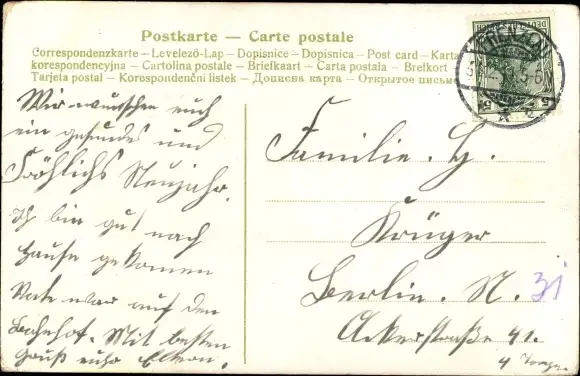 Postkarte – Carte postale
Correspondenzkarte – Levelező-Lap – Dopisnice – Dopisnica – Post card – Karta
korespondencyjna – Cartolina postale – Briefkaart – Carta postala – Brefkort
Tarjeta postal – Korospondenční listek – Дописна карта – Открытое письмо
Wir wünschen euch
ein gesundes und
Fröhlichs Neujahr.
Ich bin gut nach
Hause gekomen
Vate war auf den
Bahnhof. Mit besten
Gruß eure Eltern.
Familie. H.
Krüger
Berlin. N. 31
Ackerstraße 41.
4
5
5